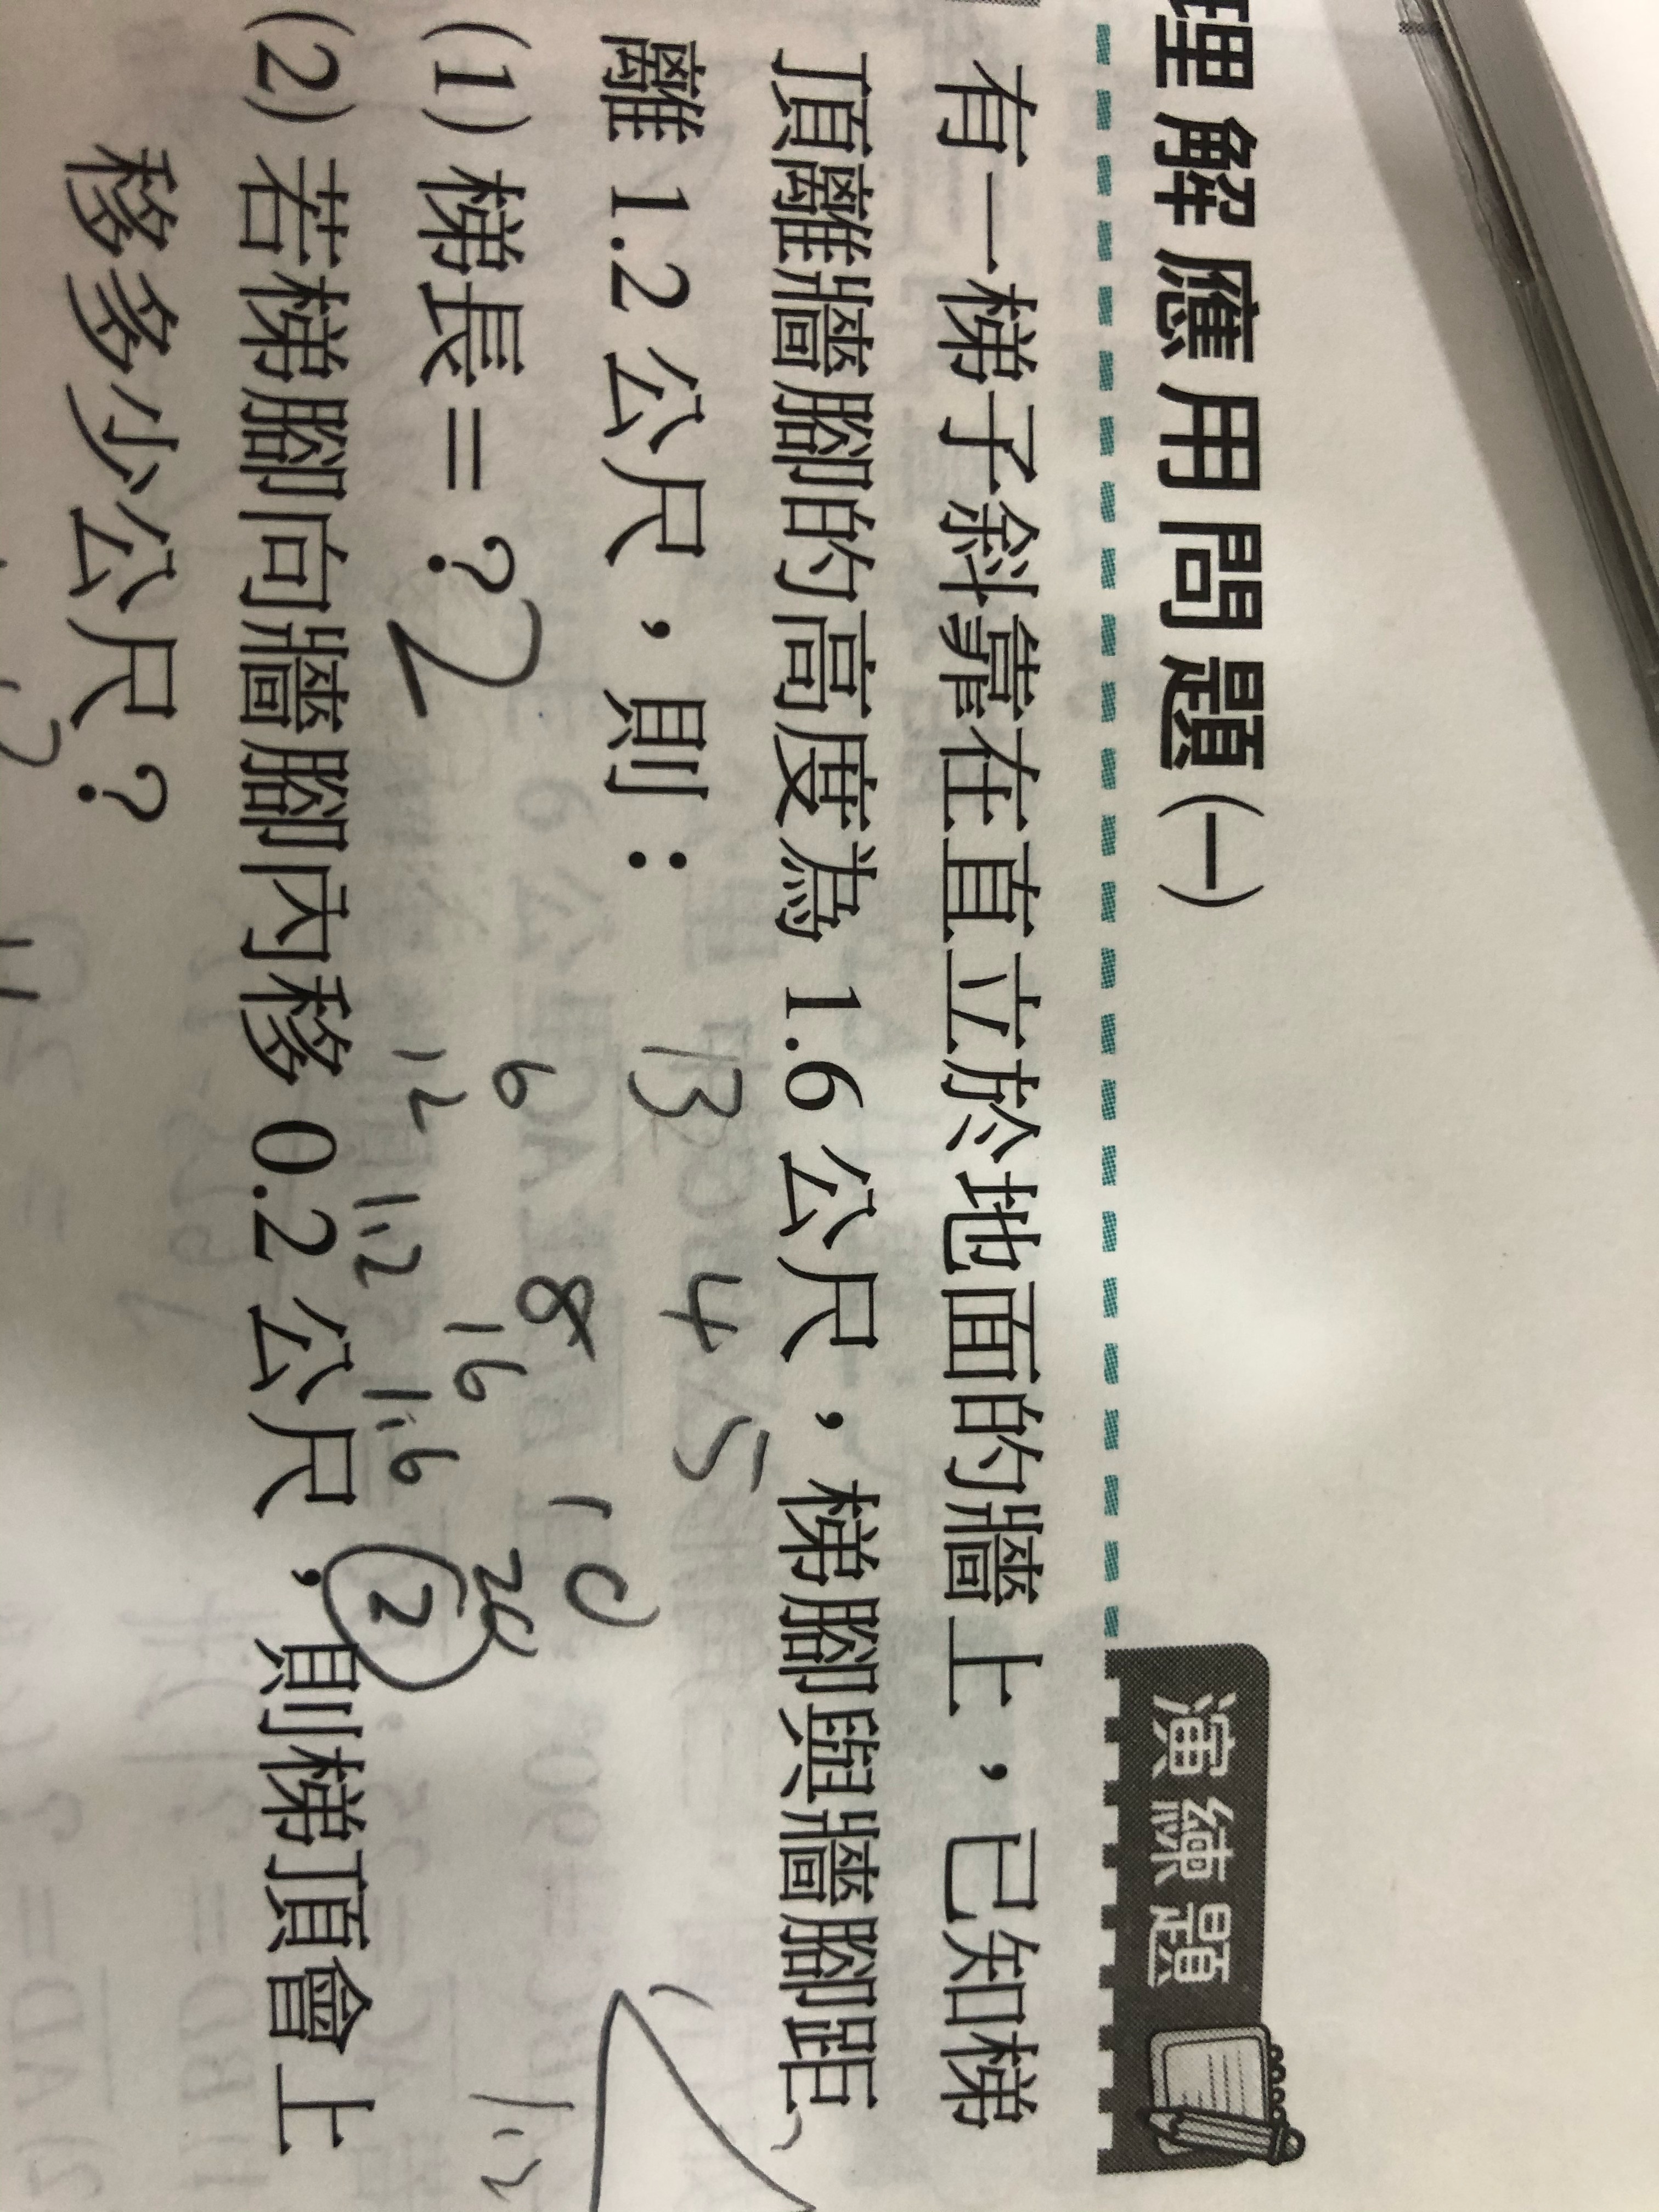 理解應用問題(一)
演練題
有一梯子斜靠在直立於地面的牆上，已知梯
頂離牆腳的高度為 1.6 公尺，梯腳與牆腳距
離 1.2 公尺，則：
(1) 梯長＝？2
(2) 若梯腳向牆腳內移 0.2 公尺，則梯頂會上
移多少公尺？
3 4 5
6 8 10
12 16 20
1.2 1.6 2
1.2